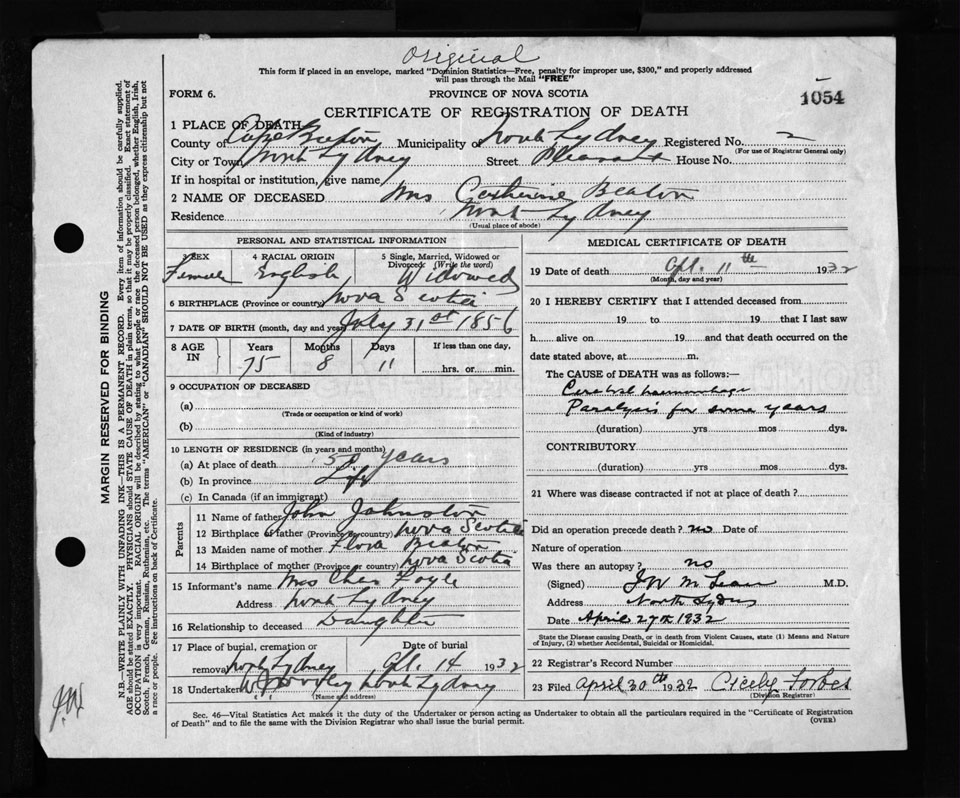 Original
This form if placed in an envelope, marked "Dominion Statistics—Free, penalty for improper use, $300," and properly addressed
will pass through the Mail "FREE"
FORM 6. PROVINCE OF NOVA SCOTIA
1054
CERTIFICATE OF REGISTRATION OF DEATH
1 PLACE OF DEATH
County of Cape Breton Municipality of North Sydney Registered No. 2
(For use of Registrar General only)
City or Town North Sydney Street Pleasant House No.
If in hospital or institution, give name
2 NAME OF DECEASED Mrs Catherine Beaton
Residence North Sydney
(Usual place of abode)
PERSONAL AND STATISTICAL INFORMATION
3 SEX 4 RACIAL ORIGIN 5 Single, Married, Widowed or
Divorced (Write the word)
Female English Widowed
6 BIRTHPLACE (Province or country) Nova Scotia
7 DATE OF BIRTH (month, day and year) July 31st 1856
8 AGE IN Years Months Days If less than one day,
75 8 11 hrs. or min.
9 OCCUPATION OF DECEASED
(a)
(Trade or occupation or kind of work)
(b)
(Kind of industry)
10 LENGTH OF RESIDENCE (in years and months)
(a) At place of death 50 years
(b) In province Life
(c) In Canada (if an immigrant)
Parents
11 Name of father John Johnston
12 Birthplace of father (Province or country) Nova Scotia
13 Maiden name of mother Flora Beaton
14 Birthplace of mother (Province or country) Nova Scotia
15 Informant's name Mrs Chas
Address North Sydney
16 Relationship to deceased Daughter
17 Place of burial, cremation or Date of burial
removal North Sydney Apl. 14 1932
18 Undertaker North Sydney
(Name and address)
MEDICAL CERTIFICATE OF DEATH
19 Date of death Apl. 11th 1932
(Month, day and year)
20 I HEREBY CERTIFY that I attended deceased from
19 to 19 that I last saw
h alive on 19 and that death occurred on the
date stated above, at m.
The CAUSE of DEATH was as follows:—
Cerebral haemorrhage
Paralysis for some years
(duration) yrs mos dys.
CONTRIBUTORY
(duration) yrs mos dys.
21 Where was disease contracted if not at place of death?
Did an operation precede death? no Date of
Nature of operation
Was there an autopsy? no
(Signed) J W McLean M.D.
Address North Sydney
Date April 27th 1932
State the Disease causing Death, or in death from Violent Causes, state (1) Means and Nature
of Injury, (2) whether Accidental, Suicidal or Homicidal.
22 Registrar's Record Number
23 Filed April 30th 1932 Cicely Forbes
(Division Registrar)
Sec. 46—Vital Statistics Act makes it the duty of the Undertaker or person acting as Undertaker to obtain all the particulars required in the "Certificate of Registration
of Death" and to file the same with the Division Registrar who shall issue the burial permit. (OVER)
MARGIN RESERVED FOR BINDING
N.B.—WRITE PLAINLY WITH UNFADING INK—THIS IS A PERMANENT RECORD. Every item of information should be carefully supplied.
AGE should be stated EXACTLY. PHYSICIANS should STATE CAUSE OF DEATH in plain terms, so that it may be properly classified. Exact statement of
OCCUPATION is very important. RACIAL ORIGIN will be described by stating to what people or race the deceased person belonged, whether English, Irish,
Scotch, French, German, Russian, Ruthenian, etc. The terms "AMERICAN" or "CANADIAN" SHOULD NOT BE USED as they express citizenship but not
a race or people. See instructions on back of Certificate.